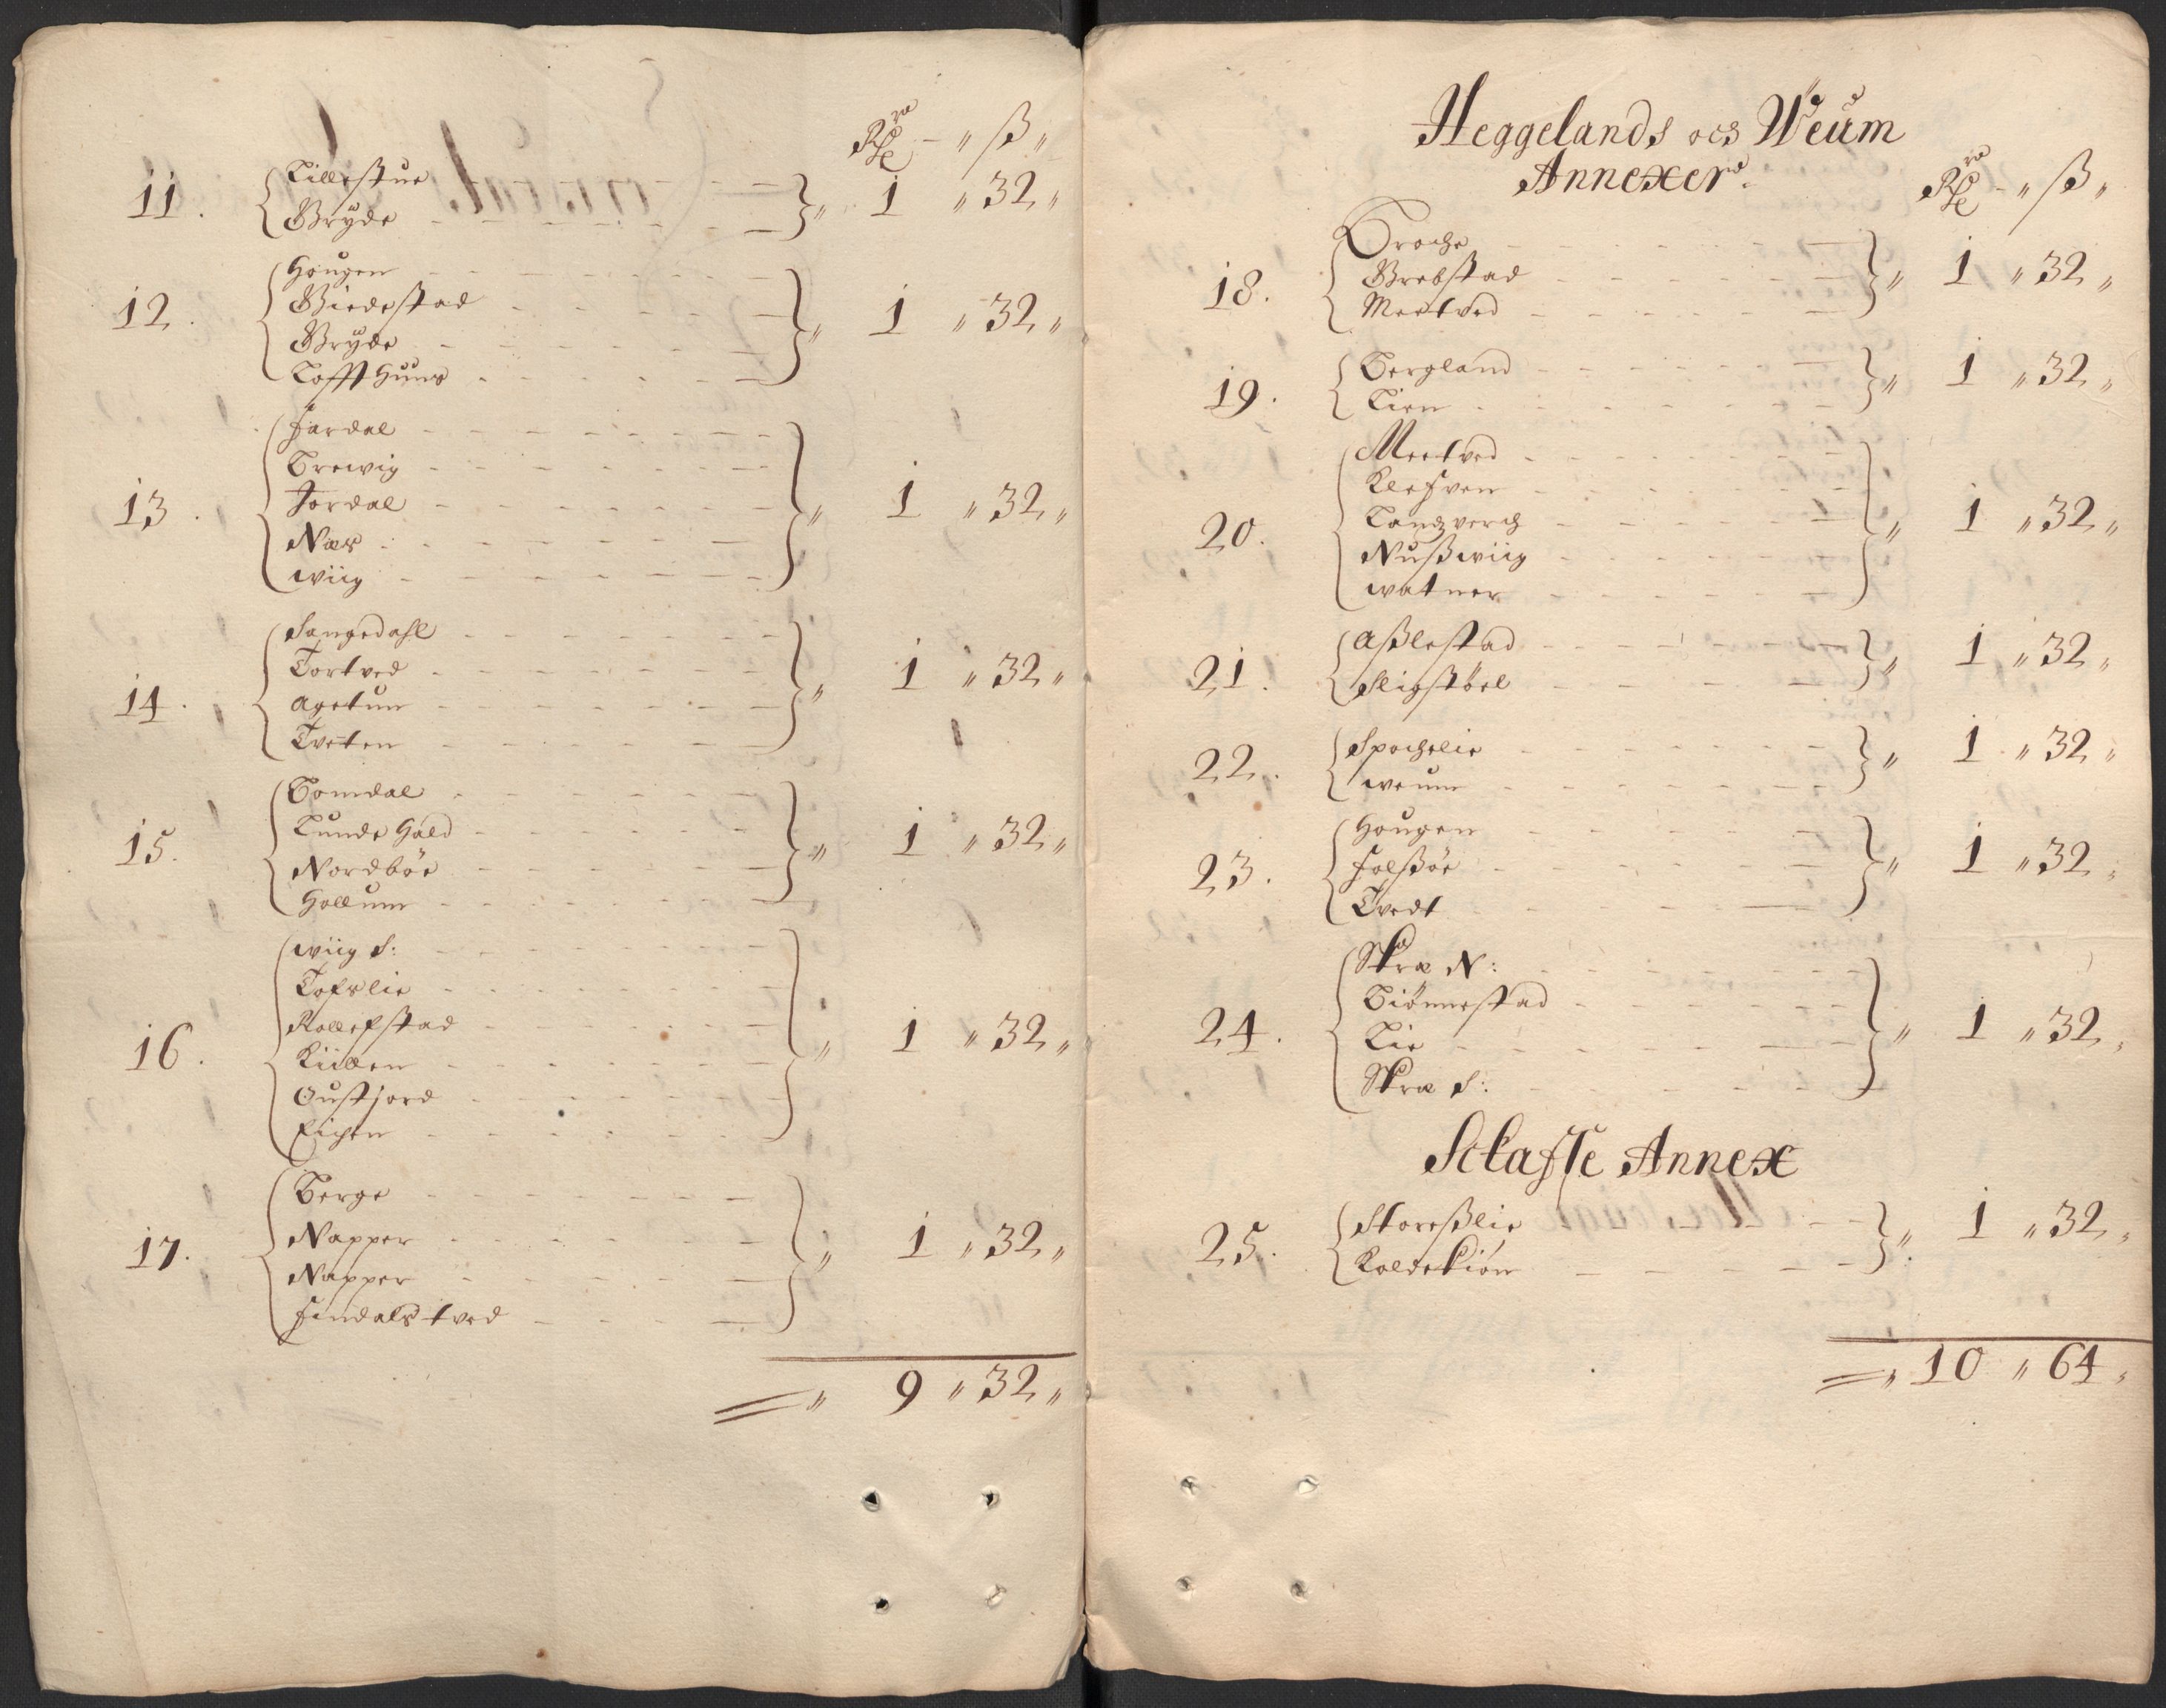 Rdr – „ ß „
11. Lillestue
Bryde „ 1 „ 32 „
12. Hougen
Biedestad
Bryde
Toffthuus „ 1 „ 32 „
13. Fardal
Brewig
Fordal
Næs
wiig „ 1 „ 32 „
14. Sangedahl
Tortved
Agetun
Tveten „ 1 „ 32 „
15. Bomdal
Lunde Hald
Nordböe
Hollum „ 1 „ 32 „
16. wiig S:
Tofslie
Rollefstad
Kiillen
Oustjord
Eichen „ 1 „ 32 „
17. Berge
Napper
Napper
Findalstved „ 1 „ 32 „
„ 9 „ 32 „
Heggelands och Weum
Annexer.
Rdr – „ ß „
18. Broche
Brebstad
Meetved „ 1 „ 32 „
19. Bergland
Lien „ 1 „ 32 „
20. Meetved
Klefven
Langverch
Nußwiig
watner „ 1 „ 32 „
21. Aßlestad
Sligstöel „ 1 „ 32 „
22. Spochelie
weum „ 1 „ 32 „
23. Hougen
Folßöe
Tvedt „ 1 „ 32 „
24. Skræ N:
Biönnestad
Lie
Skræ S: „ 1 „ 32 „
Schafse Annex
25. Storeßlie
Koldekiön „ 1 „ 32 „
„ 10 „ 64 „